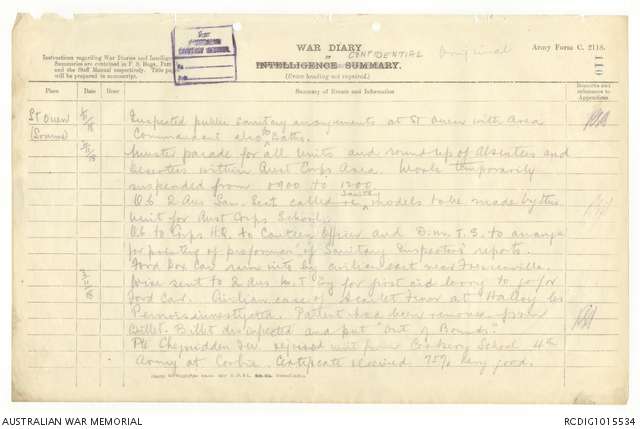 Army Form C. 2118.
WAR DIARY
or
INTELLIGENCE SUMMARY.
CONFIDENTIAL Original
(Erase heading not required.)
Instructions regarding War Diaries and Intelligence
Summaries are contained in F. S. Regs., Part
and the Staff Manual respectively. Title pages
will be prepared in manuscript.
SANITARY SECTION.
110
Place Date Hour Summary of Events and Information Remarks and references to Appendices
St Ouen
(Somme)
Inspected public sanitary arrangements at St Ouen with Area
Commandant also Baths.
Muster parade for all Units and round up of Absentees and
deserters within Aust Corps Area. Work temporarily
suspended from 0900 to 1200
O.C. 2 Aus San. Sect called re sanitary models to be made by this
Unit for Aust Corps School.
O.C. to Corps H.Q. to Canteen Officer and D.M.S. to arrange
for printing of proformas of Sanitary Inspector's reports.
Ford Box Car run into by civilian cart near
Wire sent to 2 Aus M.T Coy for first aid lorry to go for
Ford Car. Civilian case of Scarlet Fever at Halloy les
Pernois investigated. Patient had been removed from
Billet. Billet disinfected and put "Out of Bounds."
Pte rejoined unit from Cookery School 4th
Army at Corbie. Certificate received 75% very good.
AUSTRALIAN WAR MEMORIAL
RCDIG1015534